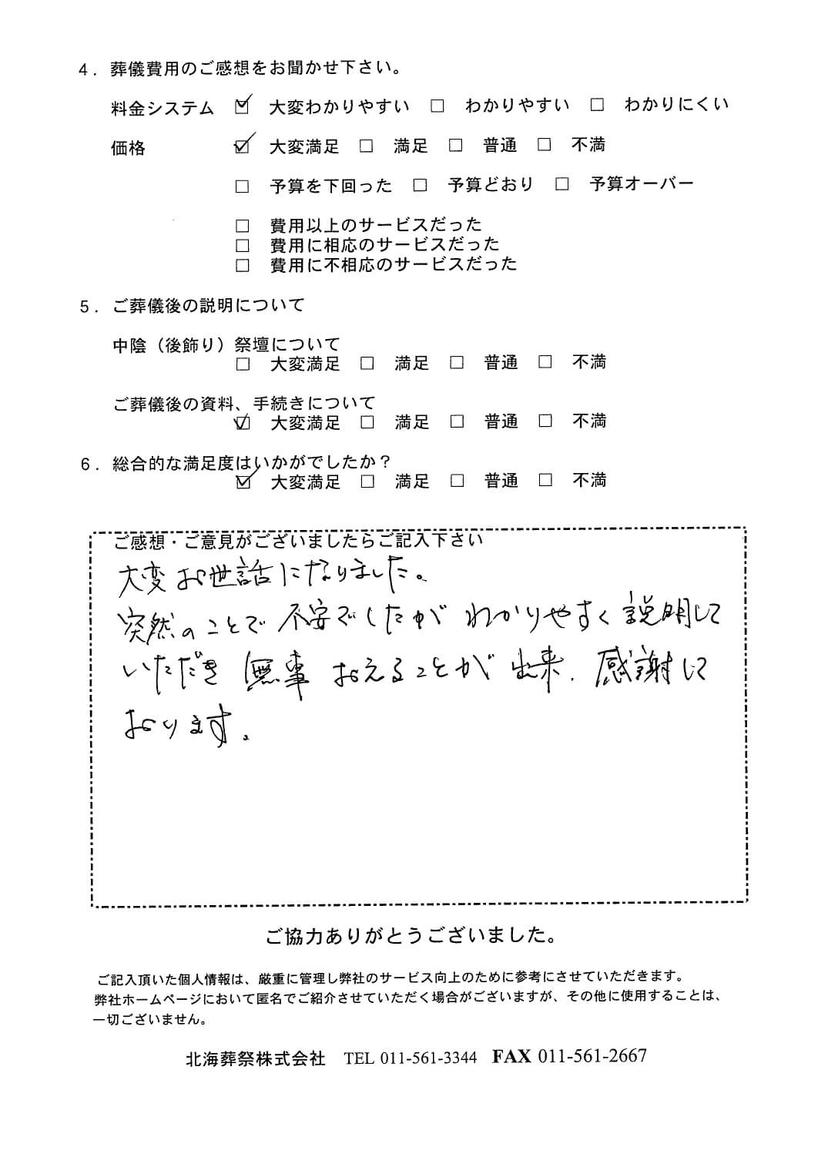 4．葬儀費用のご感想をお聞かせ下さい。
料金システム ☑ 大変わかりやすい □ わかりやすい □ わかりにくい
価格 ☑ 大変満足 □ 満足 □ 普通 □ 不満
□ 予算を下回った □ 予算どおり □ 予算オーバー
□ 費用以上のサービスだった
□ 費用に相応のサービスだった
□ 費用に不相応のサービスだった
5．ご葬儀後の説明について
中陰（後飾り）祭壇について
□ 大変満足 □ 満足 □ 普通 □ 不満
ご葬儀後の資料、手続きについて
☑ 大変満足 □ 満足 □ 普通 □ 不満
6．総合的な満足度はいかがでしたか？
☑ 大変満足 □ 満足 □ 普通 □ 不満
ご感想・ご意見がございましたらご記入下さい
大変お世話になりました。
突然のことで不安でしたがわかりやすく説明して
いただき無事おえることが出来、感謝して
おります。
ご協力ありがとうございました。
ご記入頂いた個人情報は、厳重に管理し弊社のサービス向上のために参考にさせていただきます。
弊社ホームページにおいて匿名でご紹介させていただく場合がございますが、その他に使用することは、
一切ございません。
北海葬祭株式会社 TEL 011-561-3344 FAX 011-561-2667